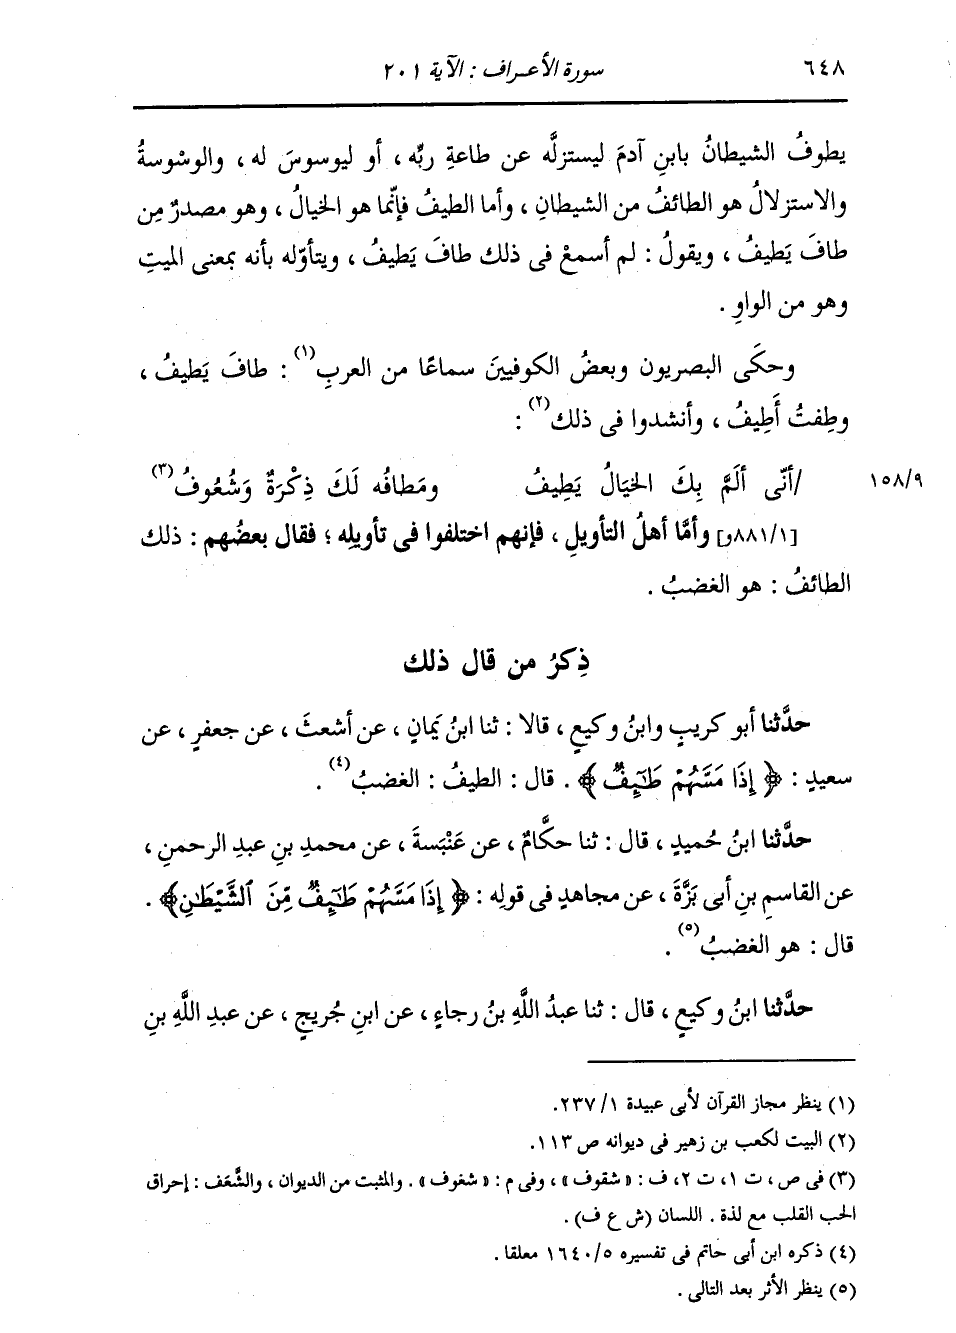 ٦٤٨ سورة الأعراف : الآية ٢٠١
يطوفُ الشيطانُ بابنِ آدمَ ليستزلَّه عن طاعةِ ربِّه ، أو ليوسوسَ له ، والوسْوسةُ
والاستزلالُ هو الطائفُ من الشيطانِ ، وأما الطيفُ فإنَّما هو الخيالُ ، وهو مصدرٌ مِن
طافَ يَطيفُ ، ويقولُ : لم أسمعْ فى ذلك طافَ يَطيفُ ، ويتأوّله بأنه بمعنى الميتِ
وهو من الواوِ .
وحكَى البصريون وبعضُ الكوفيينَ سماعًا من العربِ(١) : طافَ يَطيفُ ،
وطِفتُ أَطِيفُ ، وأنشدوا فى ذلك(٢) :
١٥٨/٩ /أنّى أَلَمَّ بِكَ الخيَالُ يَطِيفُ ومَطافُه لَكَ ذِكْرَةٌ وَشُعُوفُ(٣)
[٨٨١/١و] وأمَّا أهلُ التأويلِ ، فإنهم اختلفوا فى تأويلِه ؛ فقال بعضُهم : ذلك
الطائفُ : هو الغضبُ .
ذِكرُ من قال ذلك
حدَّثنا أبو كريبٍ وابنُ وكيعٍ ، قالا : ثنا ابنُ يَمانٍ ، عن أشعثَ ، عن جعفرٍ ، عن
سعيدٍ : ﴿ إِذَا مَسَّهُمْ طَٰٓئِفٌ ﴾ . قال : الطيفُ : الغضبُ(٤) .
حدَّثنا ابنُ حُميدٍ ، قال : ثنا حكَّامٌ ، عن عَنْبَسةَ ، عن محمدِ بنِ عبدِ الرحمنِ ،
عن القاسمِ بنِ أبى بَزَّةَ ، عن مجاهدٍ فى قولِه : ﴿ إِذَا مَسَّهُمْ طَٰٓئِفٌ مِّنَ ٱلشَّيْطَٰنِ ﴾ .
قال : هو الغضبُ(٥) .
حدَّثنا ابنُ وكيعٍ ، قال : ثنا عبدُ اللَّهِ بنُ رجاءٍ ، عن ابنِ جُريجٍ ، عن عبدِ اللَّهِ بنِ
(١) ينظر مجاز القرآن لأبى عبيدة ١/ ٢٣٧.
(٢) البيت لكعب بن زهير فى ديوانه ص ١١٣.
(٣) فى ص ، ت ١، ت ٢، ف : « شقوف » ، وفى م : « شغوف » . والمثبت من الديوان ، والشَّعَف : إحراق
الحب القلب مع لذة . اللسان (ش ع ف) .
(٤) ذكره ابن أبى حاتم فى تفسيره ٥/ ١٦٤٠ معلقا .
(٥) ينظر الأثر بعد التالى .